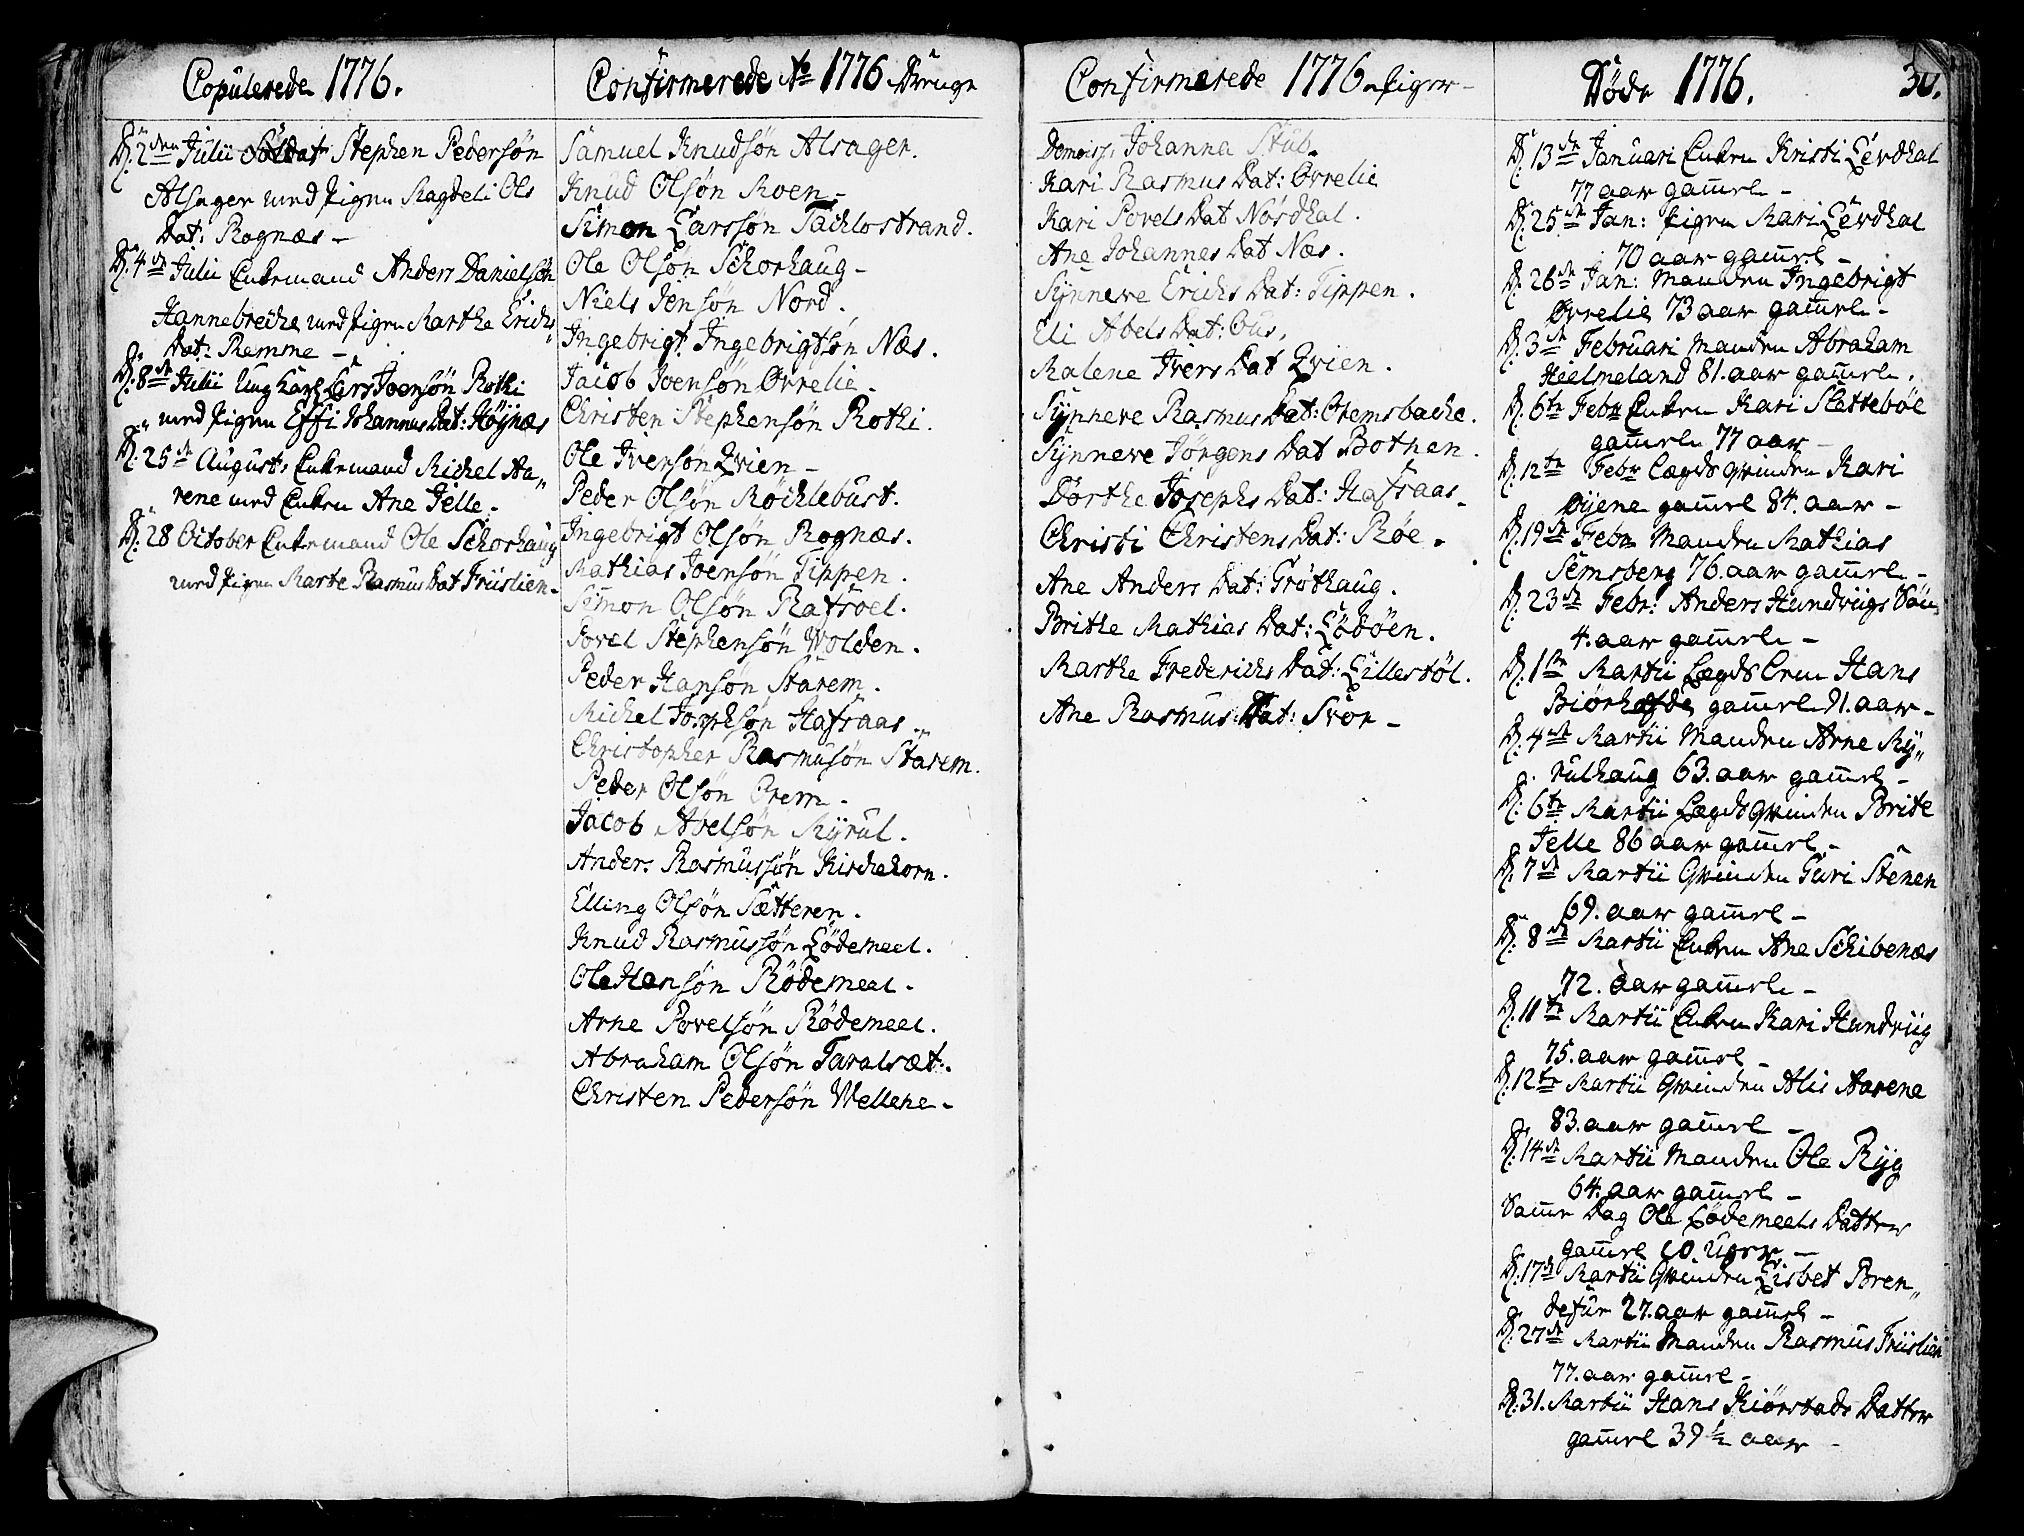 Copulerede 1776.
D: 2den Julii Soldat Stephen Pedersøn
Alsager med Pigen Magdeli Ols
Dat: Rognæs –
D: 4de Julii Enkemand Anders Danielsøn
Hannebreche med Pigen Marthe Erichs
Dat: Remme –
D: 8de Julii Ung Karl Lars Joensøn Rothi
med Pigen Effi Johannes Dat: Høÿnæs
D: 25de August: Enkemand Michel Aa„
rene med Enken Ane Jelle.
D: 28 October Enkemand Ole Schorhaug
med Pigen Marte Rasmus Dat Friislien.
Confirmerede Ao 1776 Drenge
Samuel Knudsøn Alsager.
Knud Olsøn Moen –
Simon Larssøn Tachlostrand.
Ole Olsøn Schorhaug –
Niels Jensøn Nord.
Ingebrigt Ingebrigtsøn Næs.
Jacob Joensøn Øvrelie.
Christen Stephensøn Rothi.
Ole Iversøn Qvien –
Peder Olsøn Møchlebust.
Ingebrigt Olsøn Rognæs.
Mathias Joensøn Tippen.
Simon Olsøn Rafsoel.
Povel Stephensøn Wolden.
Peder Hansøn Starem.
Michel Josephsøn Hafsaas.
Christopher Rasmusøn Starem.
Peder Olsøn Orem.
Jacob Abelsøn Myrul.
Anders Rasmussøn Kirchehorn.
Elling Olsøn Sætteren.
Knud Rasmussøn Lødemeel.
Ole Hansøn Rødemeel.
Arne Povelsøn Rødemeel.
Abraham Olsøn Taralsæt.
Christen Pedersøn Wellene.
Confirmerede 1776 Piger
Demois: Johanna Stub.
Kari Rasmus Dat: Øvrelie
Kari Povels Dat Nordhal.
Ane Johannes Dat Næs.
Synneve Erichs Dat: Tippen.
Eli Abels Dat: Øus.
Malene Ivers Dat Qvien.
Synneve Rasmus Dat: Oremsbache.
Synneve Jørgens Dat Bothen.
Dorthe Josephs Dat: Hafsaas.
Christi Christens Dat: Røe.
Ane Anders Dat: Grøthaug.
Brithe Mathias Dat: Lødøen.
Marthe Frederichs Dat: Lillestøl.
Ane Rasmus Dat: Svor –
Døde 1776. 30.
D: 13de Januari Enken Kristi Lerdhal
77 aar gammel –
D: 25de Jan: Pigen Mari Lerdhal
70 aar gammel –
D: 26de Jan: Manden Ingebrigt
Øvrelie 73 aar gammel.
D: 3de Februari Manden Abraham
Heelmeland 81. aar gammel.
D: 6te Febr Enken Kari Slettebøe
gammel 77 aar
D: 12te Febr Lægds Qvinden Kari
Øÿene gammel 84. aar –
D: 19de Febr Manden Mathias
Semsberg 76. aar gammel –
D: 23de Febr: Anders Hundviigs Søn
4. aar gammel –
D: 1ste Martii Lægds Lem Hans
Biørhofde gammel 91. aar.
D: 4de Martii Manden Arne My„
rulhaug 63. aar gammel –
D: 6te Martii Lægds Qvinden Brite
Jelle 86 aar gammel –
D: 7de Martii Qvinden Guri Stenen
69. aar gammel –
D: 8de Martii Enken Ane Schibenæs
72. aar gammel –
D: 11te Martii Enken Kari Hundviig
75. aar gammel –
D: 12te Martii Qvinden Alis Aarene
83. aar gammel –
D: 14de Martii Manden Ole Ryg
64. aar gammel –
Samme Dag Ole Lødemeels Datter
gammel 10. Uger –
D: 17de Martii Qvinden Lisbet Bren„
defur 27. aar gammel –
D: 27de Martii Manden Rasmus Friislien
77. aar gammel –
D: 31. Martii Hans Kiørstads Datter
gammel 39 ½ aar –